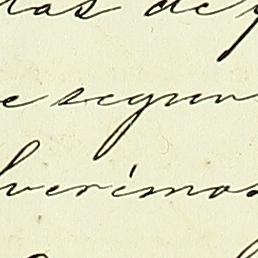 tas de
e segun
huerimos